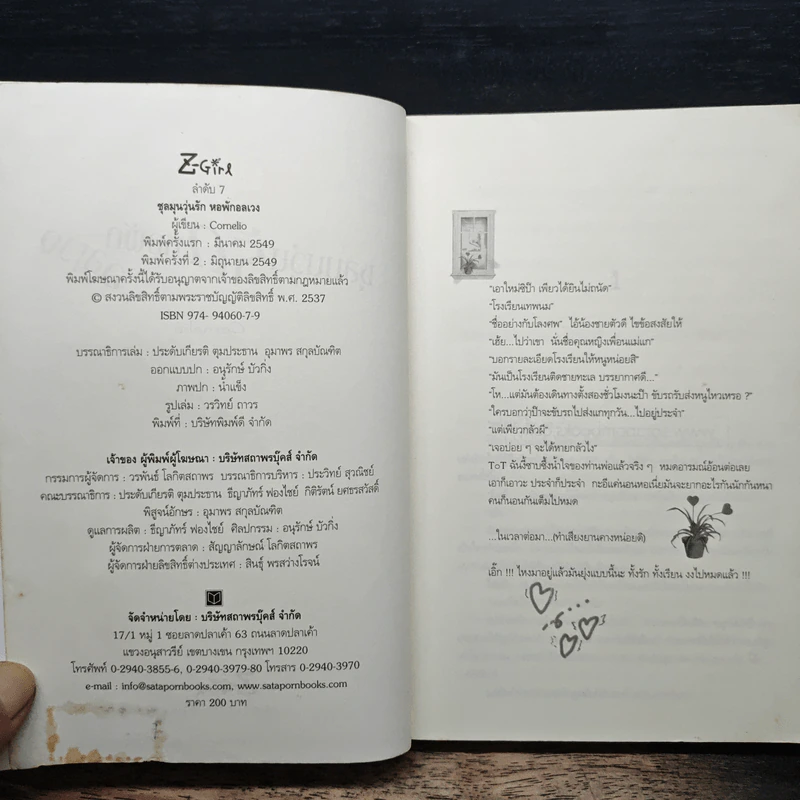 Z-Girl
ลำดับ 7
ชุลมุนวุ่นรัก หอพักอลเวง
ผู้เขียน : Cornelio
พิมพ์ครั้งแรก : มีนาคม 2549
พิมพ์ครั้งที่ 2 : มิถุนายน 2549
พิมพ์โฆษณาครั้งนี้ได้รับอนุญาตจากเจ้าของลิขสิทธิ์ตามกฎหมายแล้ว
© สงวนลิขสิทธิ์ตามพระราชบัญญัติลิขสิทธิ์ พ.ศ. 2537
ISBN 974- 94060-7-9
บรรณาธิการเล่ม : ประดับเกียรติ ตุมประธาน อุมาพร สกุลบัณฑิต
ออกแบบปก : อนุรักษ์ บัวกิ่ง
ภาพปก : น้ำแข็ง
รูปเล่ม : วรวิทย์ ถาวร
พิมพ์ที่ : บริษัทพิมพ์ดี จำกัด
เจ้าของ ผู้พิมพ์ผู้โฆษณา : บริษัทสถาพรบุ๊คส์ จำกัด
กรรมการผู้จัดการ : วรพันธ์ โลกิตสถาพร บรรณาธิการบริหาร : ประวิทย์ สุวณิชย์
คณะบรรณาธิการ : ประดับเกียรติ ตุมประธาน ธีญาภัทร์ ฟองไชย์ กิติรัตน์ ยศธรสวัสดิ์
พิสูจน์อักษร : อุมาพร สกุลบัณฑิต
ดูแลการผลิต : ธีญาภัทร์ ฟองไชย์ ศิลปกรรม : อนุรักษ์ บัวกิ่ง
ผู้จัดการฝ่ายการตลาด : สัญญาลักษณ์ โลกิตสถาพร
ผู้จัดการฝ่ายลิขสิทธิ์ต่างประเทศ : สินธุ์ พรสว่างโรจน์
จัดจำหน่ายโดย : บริษัทสถาพรบุ๊คส์ จำกัด
17/1 หมู่ 1 ซอยลาดปลาเค้า 63 ถนนลาดปลาเค้า
แขวงอนุสาวรีย์ เขตบางเขน กรุงเทพฯ 10220
โทรศัพท์ 0-2940-3855-6, 0-2940-3979-80 โทรสาร 0-2940-3970
e-mail : info@satapornbooks.com, www.satapornbooks.com
ราคา 200 บาท
"เอาใหม่ซิป๊า เพียวได้ยินไม่ถนัด"
"โรงเรียนเทพนม"
"ชื่ออย่างกับโลงศพ" ไอ้น้องชายตัวดี ไขข้อสงสัยให้
"เฮ้ย...ไปว่าเขา นั่นชื่อคุณหญิงเพื่อนแม่แก"
"บอกรายละเอียดโรงเรียนให้หนูหน่อยสิ"
"มันเป็นโรงเรียนติดชายทะเล บรรยากาศดี..."
"โห...แต่มันต้องเดินทางตั้งสองชั่วโมงนะป๊า ขับรถรับส่งหนูไหวเหรอ ?"
"ใครบอกว่าป๊าจะขับรถไปส่งแกทุกวัน...ไปอยู่ประจำ"
"แต่เพียวกลัวผี"
"เจอบ่อย ๆ จะได้หายกลัวไง"
ToT ฉันนี้ซาบซึ้งน้ำใจของท่านพ่อแล้วจริง ๆ หมดอารมณ์อ้อนต่อเลย
เอาก็เอาวะ ประจำก็ประจำ กะอีแค่นอนหอเนี่ยมันจะยากอะไรกันนักกันหนา
คนก็นอนกันเต็มไปหมด
...ในเวลาต่อมา...(ทำเสียงยานคางหน่อยดิ)
เอิ๊ก !!! ไหงมาอยู่แล้วมันยุ่งแบบนี้นะ ทั้งรัก ทั้งเรียน งงไปหมดแล้ว !!!